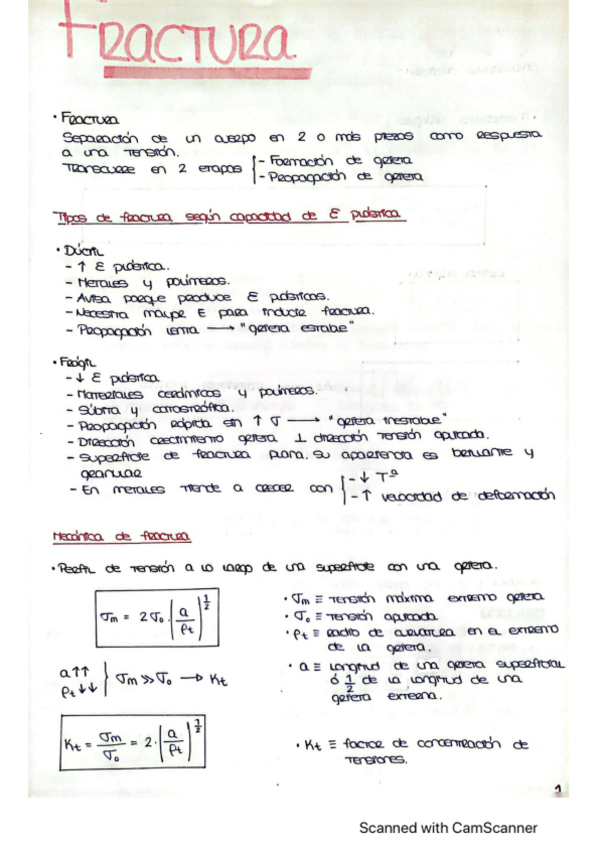 FRACTURA
• FRACTURA
Separación de un cuerpo en 2 o más piezas como respuesta
a una tensión.
Transcurre en 2 etapas
- Formación de grieta
- Propagación de grieta
Tipos de fractura según capacidad de E plástica
• Dúctil
- ↑ E plástica.
- Metales y polímeros.
- Avisa porque produce E plásticas.
- Necesita mayor E para inducir fractura.
- Propagación lenta → "grieta estable"
• Frágil
- ↓ E plástica
- Materiales cerámicos y polímeros.
- Súbita y catastrófica.
- Propagación rápida sin ↑ σ → "grieta inestable"
- Dirección crecimiento grieta ⊥ dirección tensión aplicada.
- Superficie de fractura plana. Su apariencia es brillante y
granular
- En metales tiende a crecer con
- ↓ Tª
- ↑ velocidad de deformación
Mecánica de fractura
• Perfil de tensión a lo largo de una superficie con una grieta.
σm = 2σo·(a/ρt)^1/2
• σm ≡ tensión máxima extremo grieta
• σo ≡ tensión aplicada
• ρt ≡ radio de curvatura en el extremo
de la grieta.
• a ≡ longitud de una grieta superficial
ó 1/2 de la longitud de una
grieta
a↑↑
ρt↓↓ } σm >> σo → Kt
Kt = σm/σo = 2·(a/ρt)^1/2
• Kt ≡ factor de concentración de
tensiones.
1
Scanned with CamScanner